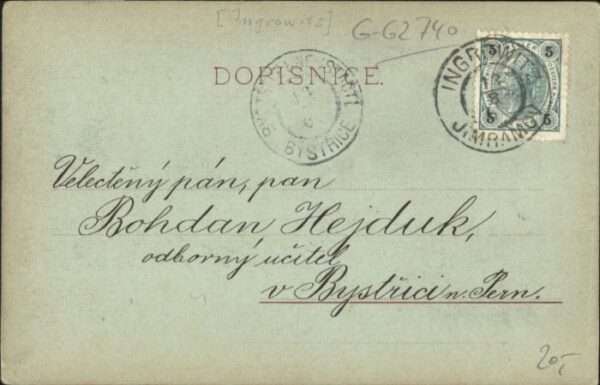 [Ingrowitz]
G-G2740
DOPISNICE.
5 5
INGROWITZ
JIMRAMOV
5 5
BYSTŘICE
Velectěný pán, pan
Bohdan Hejduk,
odborný učitel
v Bystřici n. Pern.
20,-